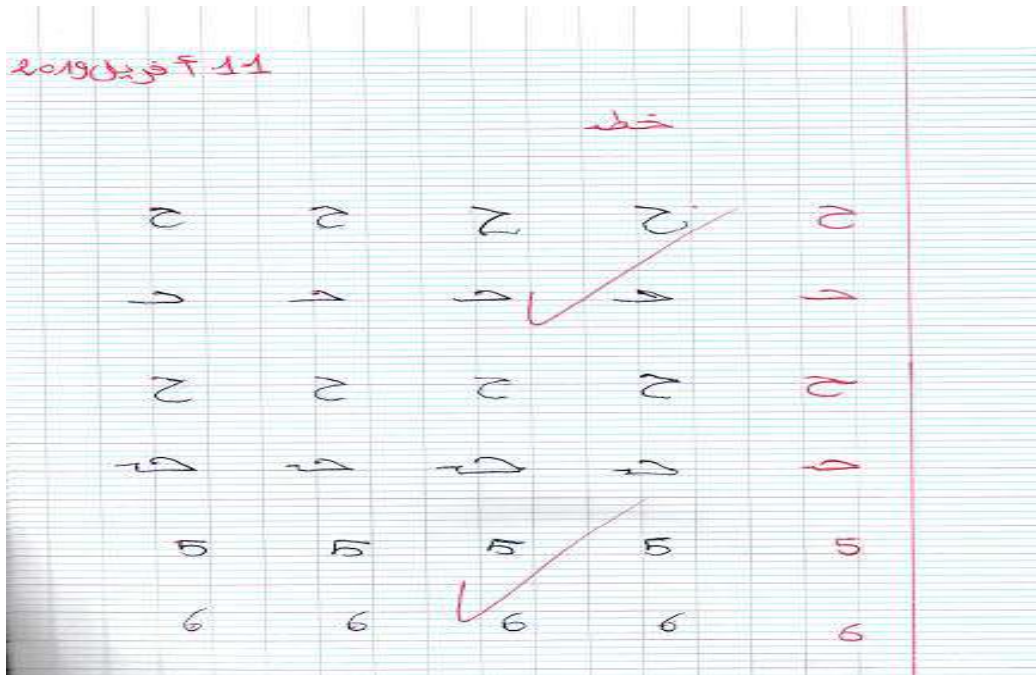 11 أفريل 2019
خط
ح ح ح ح ح
حـ حـ حـ حـ حـ
ح ح ح ح ح
حـ حـ حـ حـ حـ
5 5 5 5 5
6 6 6 6 6